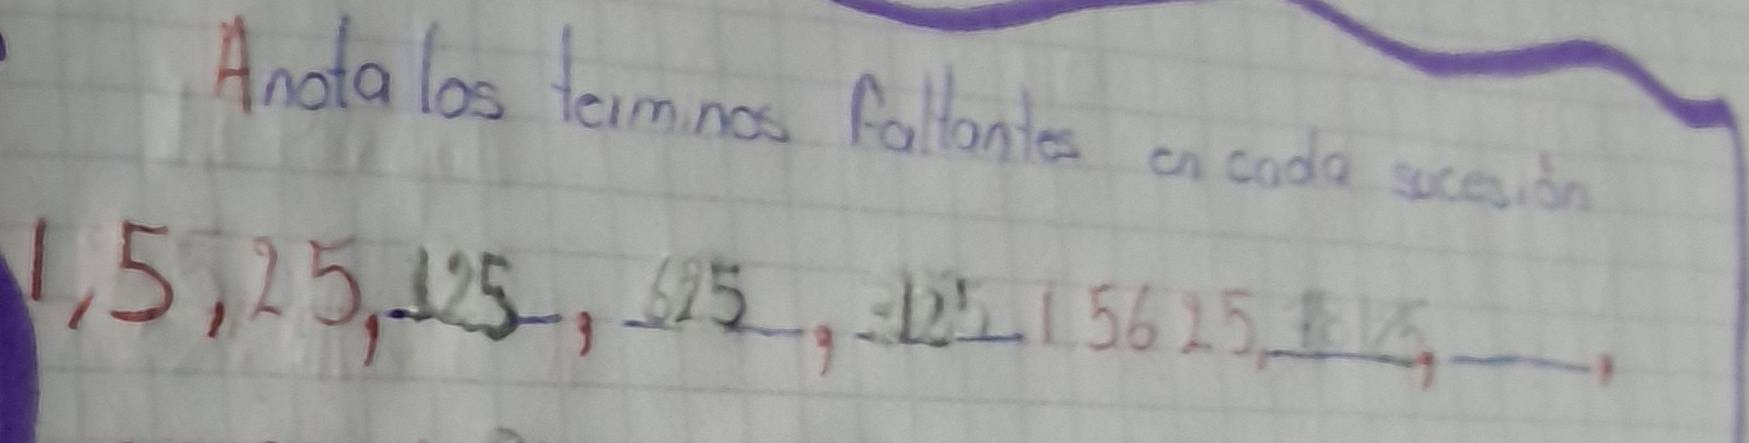 Anota los terminos faltantes en cada sucesión
1, 5, 25, 125, 625, 3125 15625, ____, ____,